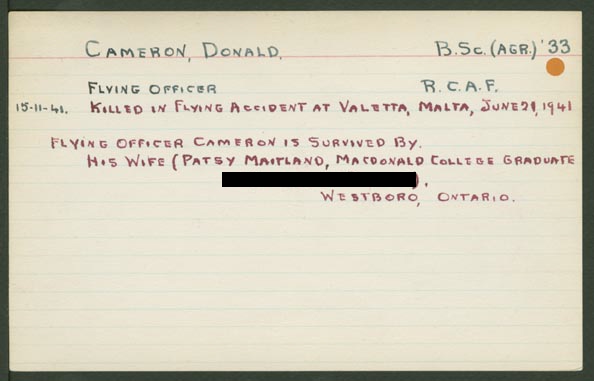 CAMERON, DONALD. B.Sc. (AGR.) '33
FLYING OFFICER R.C.A.F.
15-11-41. KILLED IN FLYING ACCIDENT AT VALETTA, MALTA, JUNE 21, 1941
FLYING OFFICER CAMERON IS SURVIVED BY.
HIS WIFE (PATSY MAITLAND, MACDONALD COLLEGE GRADUATE
).
WESTBORO, ONTARIO.